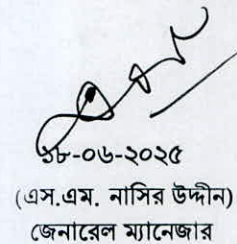 ১৮-০৬-২০২৫
(এস.এম. নাসির উদ্দীন)
জেনারেল ম্যানেজার